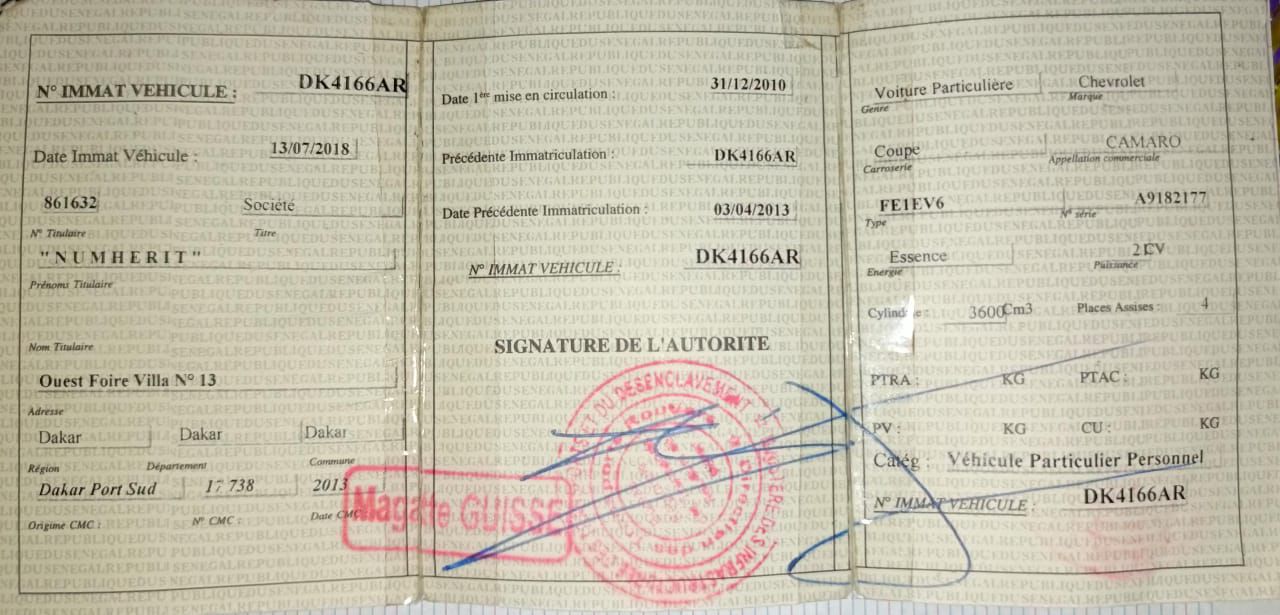 N° IMMAT VEHICULE : DK4166AR
Date Immat Véhicule : 13/07/2018
861632 Société
N° Titulaire Titre
"NUMHERIT"
Prénoms Titulaire
Nom Titulaire
Ouest Foire Villa N° 13
Adresse
Dakar Dakar Dakar
Région Département Commune
Dakar Port Sud 17 738 2013
Origime CMC : N° CMC : Date CMC
Magatte GUISSE
Date 1ère mise en circulation : 31/12/2010
Précédente Immatriculation : DK4166AR
Date Précédente Immatriculation : 03/04/2013
N° IMMAT VEHICULE : DK4166AR
SIGNATURE DE L'AUTORITE
ET DU DESENCLAVEMENT
Direction des
Voiture Particulière Chevrolet
Genre Marque
Coupe CAMARO
Carroserie Appellation commerciale
FE1EV6 A9182177
Type N° série
Essence CV
Energie Puissance
3600 Cm3 Places Assises : 4
PTRA : KG PTAC : KG
PV : KG CU : KG
Catég : Véhicule Particulier Personnel
N° IMMAT VEHICULE : DK4166AR